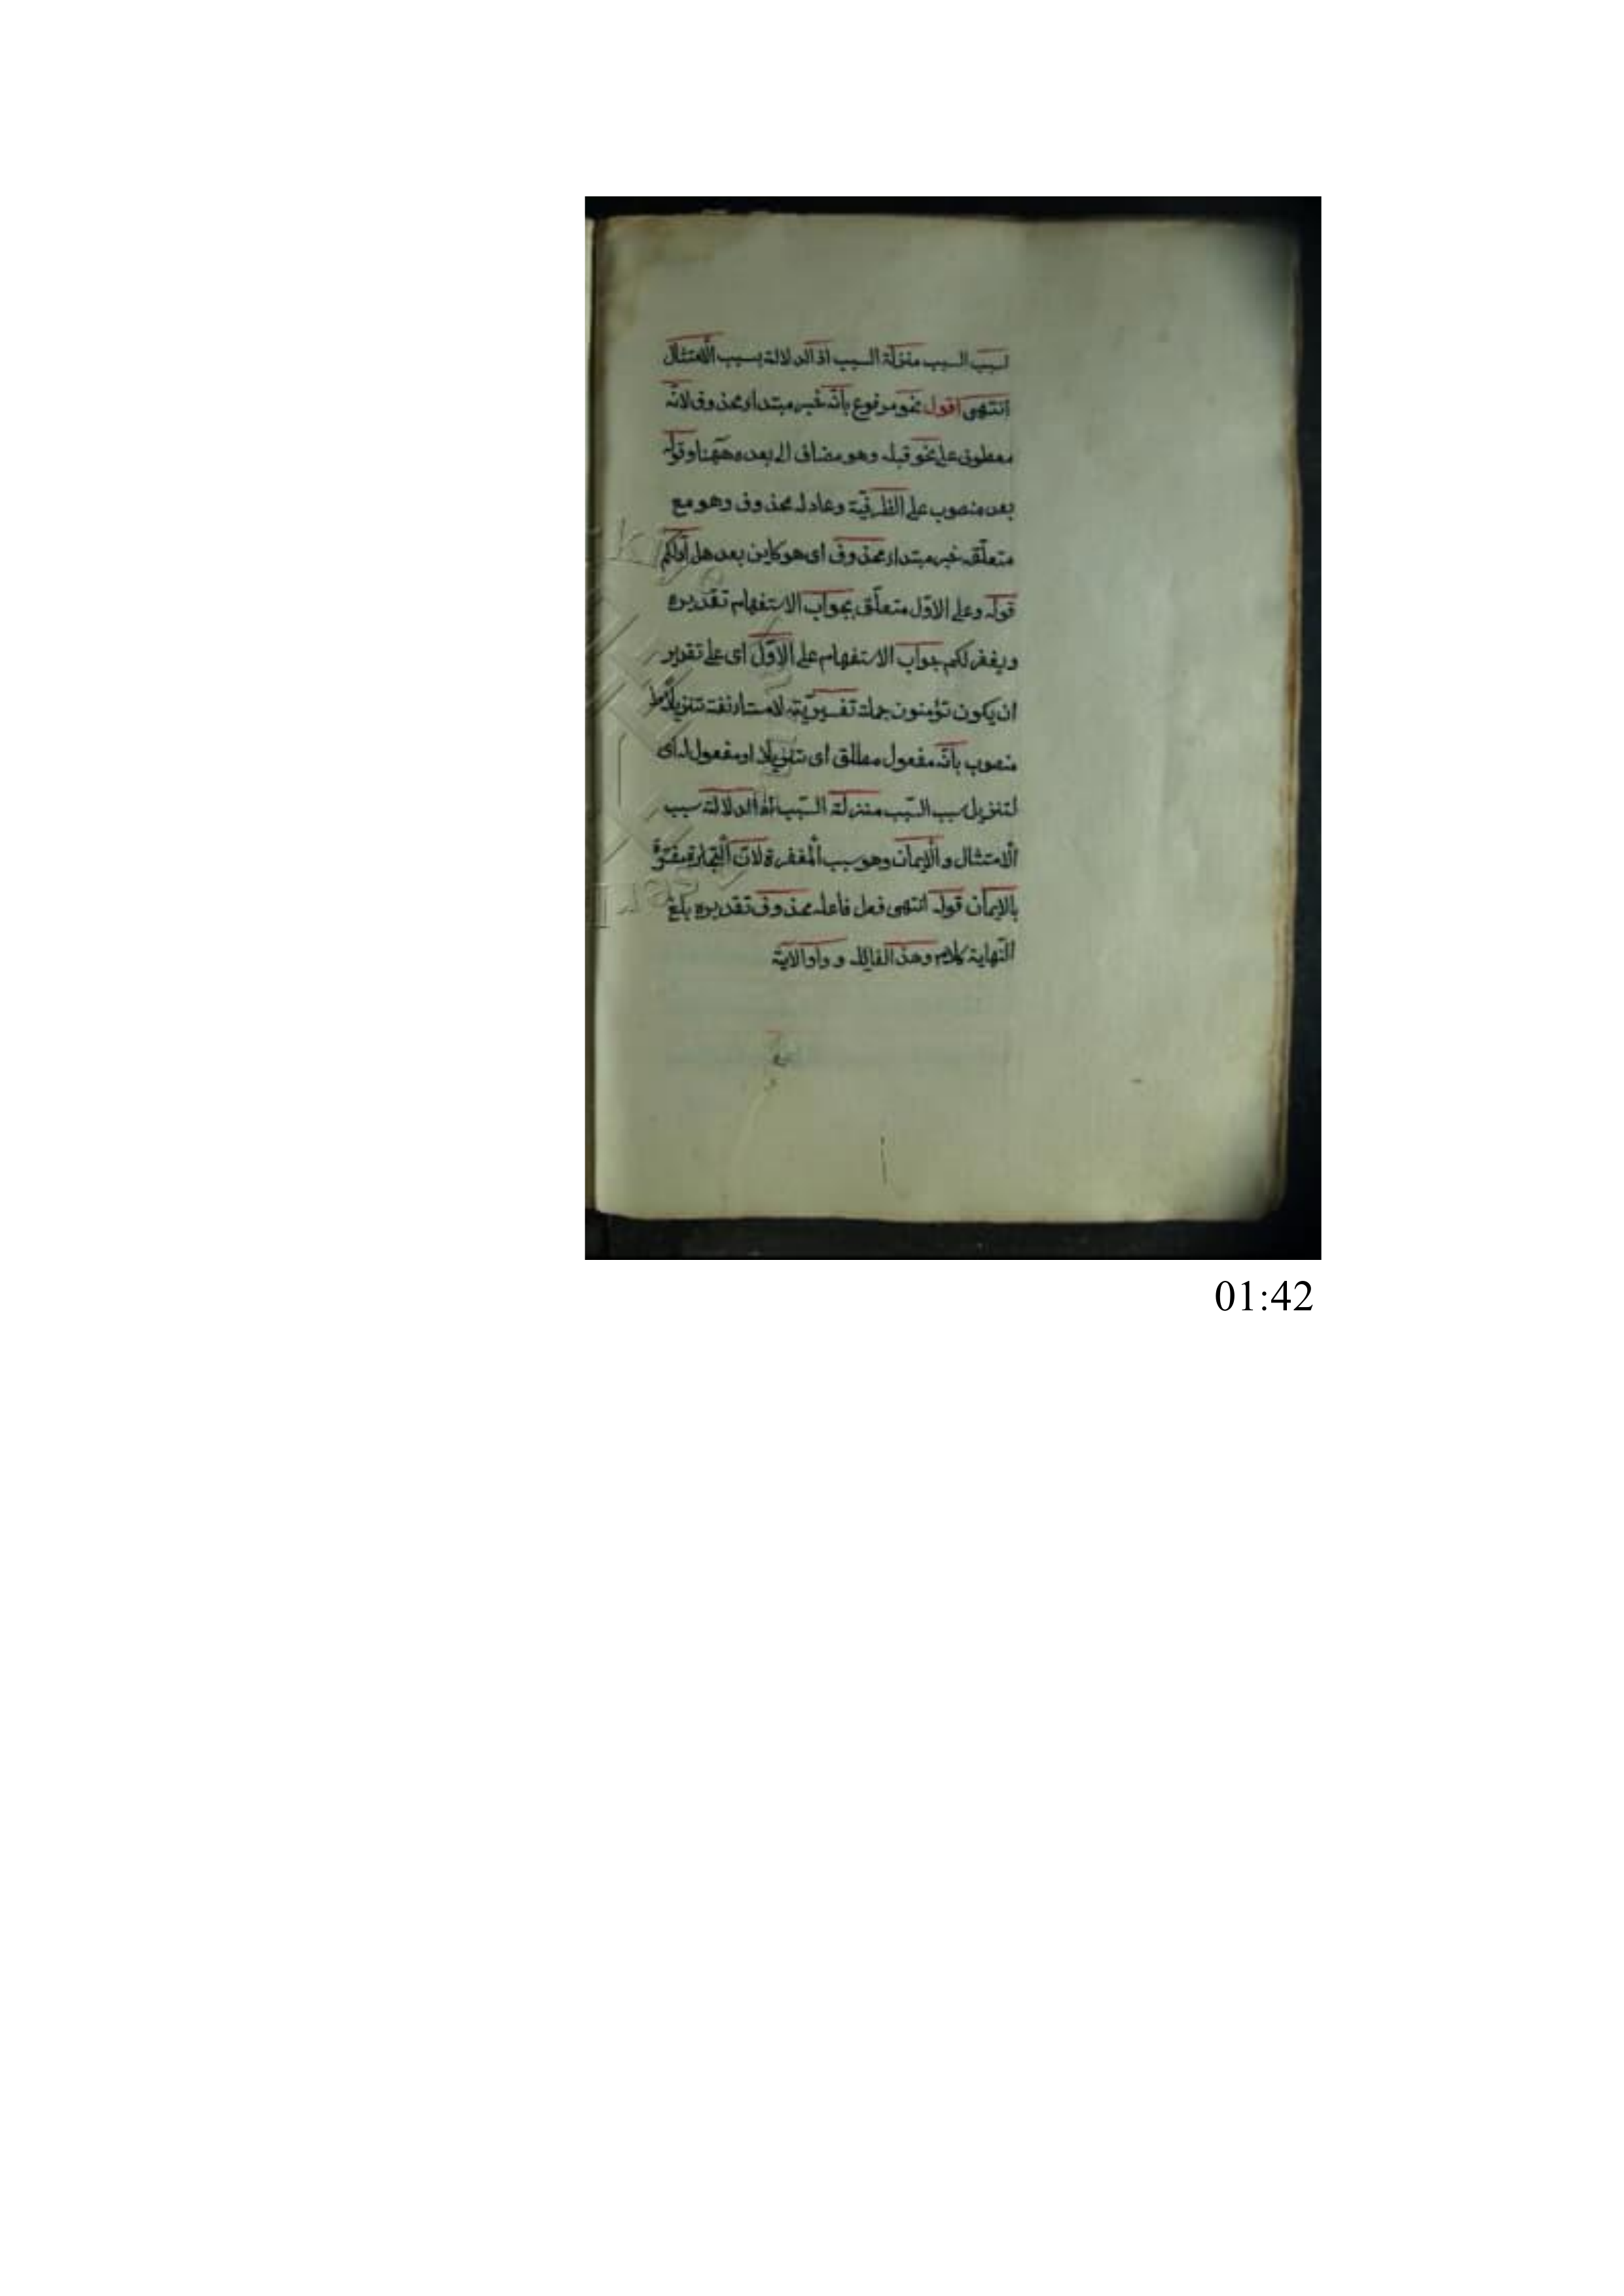 لسبب السبب منزلة السبب اذ الدلالة بسبب الامتثال
انتهى اقول نحو مرفوع بانّه خبر مبتداء محذوف لانّه
معطوف على نحو قبله وهو مضاف الى بعد ههنا وقوله
بعد منصوب على الظرفيّة وعامله محذوف وهو مع
متعلّقه خبر مبتداء محذوف اى هو كاين بعد هل ادلّكم
قوله وعلى الاوّل متعلّق بجواب الاستفهام تقديره
ويغفر لكم جواب الاستفهام على الاوّل اى على تقدير
ان يكون تؤمنون جملة تفسيريّة لا مستأنفة تنزيلا
منصوب بانّه مفعول مطلق اى تنزيلا او مفعول له اى
لتنزيل سبب السّبب منزلة السّبب الدلالة سبب
الامتثال والايمان وهو سبب المغفرة لانّ التجارة
بالايمان قوله انتهى فعل فاعله محذوف تقديره بلغ
النّهاية كلام وهذ القايل
01:42